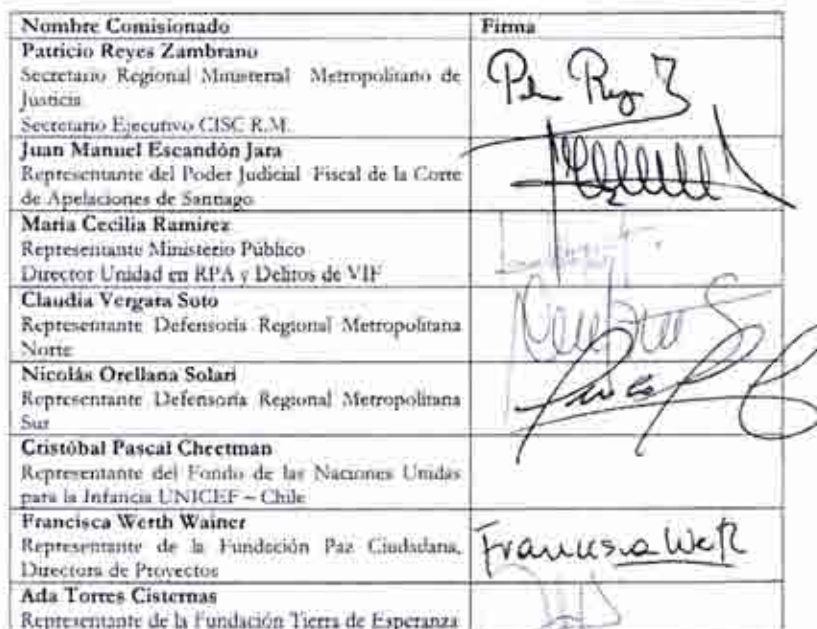 Nombre Comisionado Firma
Patricio Reyes Zambrano
Secretario Regional Ministerial Metropolitano de
Justicia
Secretario Ejecutivo CISC R.M.
Juan Manuel Escandón Jara
Representante del Poder Judicial Fiscal de la Corte
de Apelaciones de Santiago
María Cecilia Ramírez
Representante Ministerio Público
Director Unidad en RPA y Delitos de VIF
Claudia Vergara Soto
Representante Defensoría Regional Metropolitana
Norte
Nicolás Orellana Solari
Representante Defensoría Regional Metropolitana
Sur
Cristóbal Pascal Cheetman
Representante del Fondo de las Naciones Unidas
para la Infancia UNICEF – Chile
Francisca Werth Wainer
Representante de la Fundación Paz Ciudadana,
Directora de Proyectos
Francisca Werth
Ada Torres Cisternas
Representante de la Fundación Tierra de Esperanza